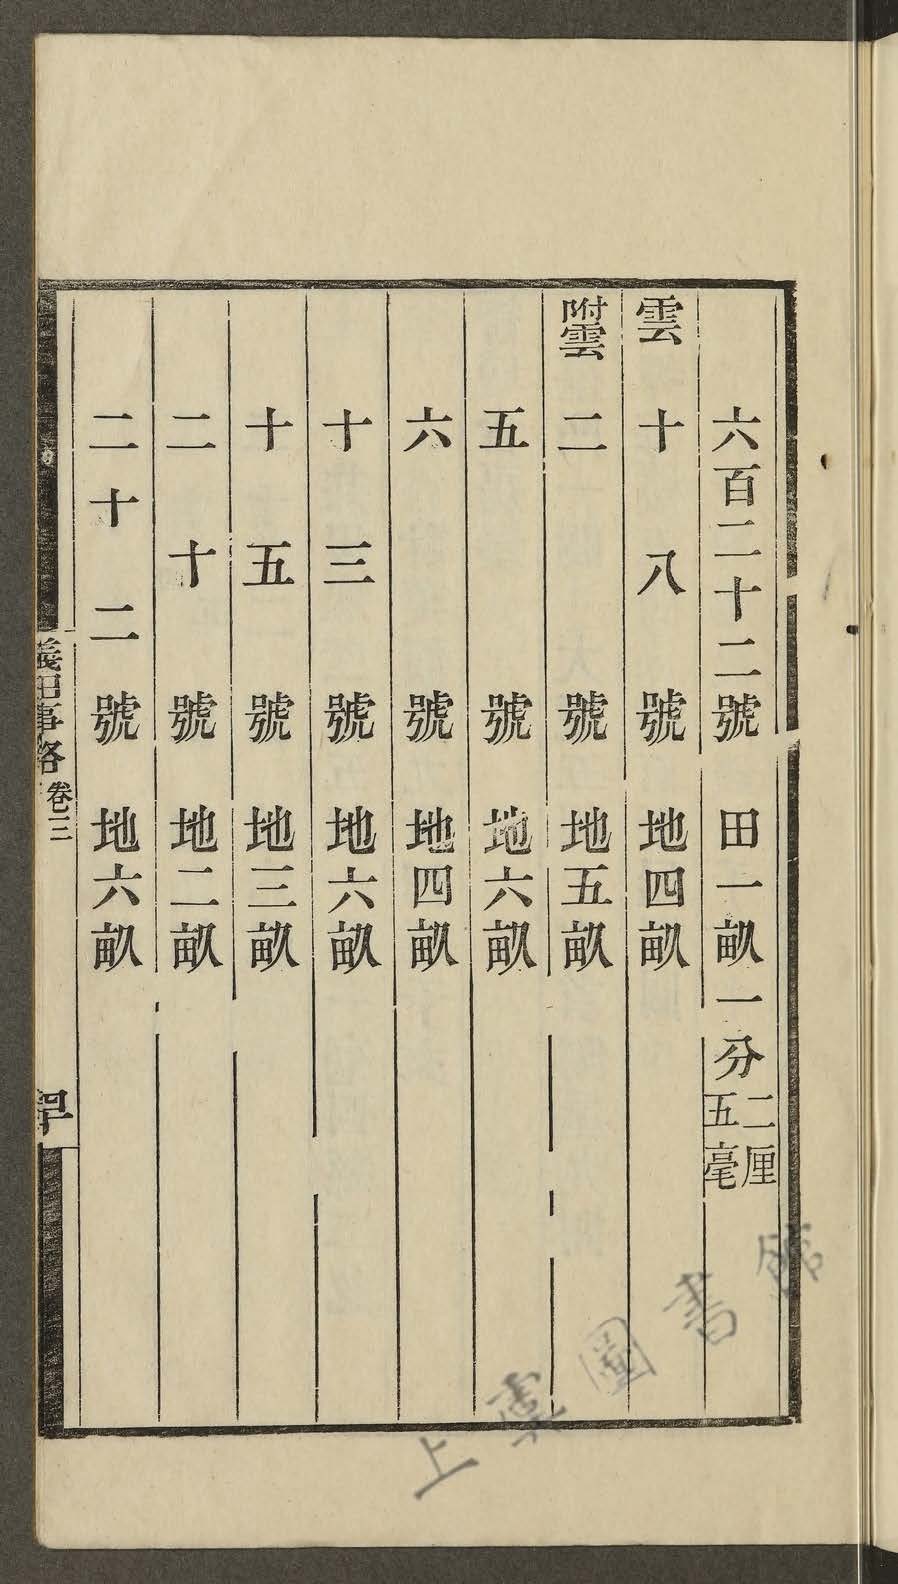 六百二十二號　田一畝一分二厘五毫
雲　十八號　地四畝
附雲　二號　地五畝
五號　地六畝
六號　地四畝
十三號　地六畝
十五號　地三畝
二十號　地二畝
二十二號　地六畝
義田事略　卷三
上虞圖書館